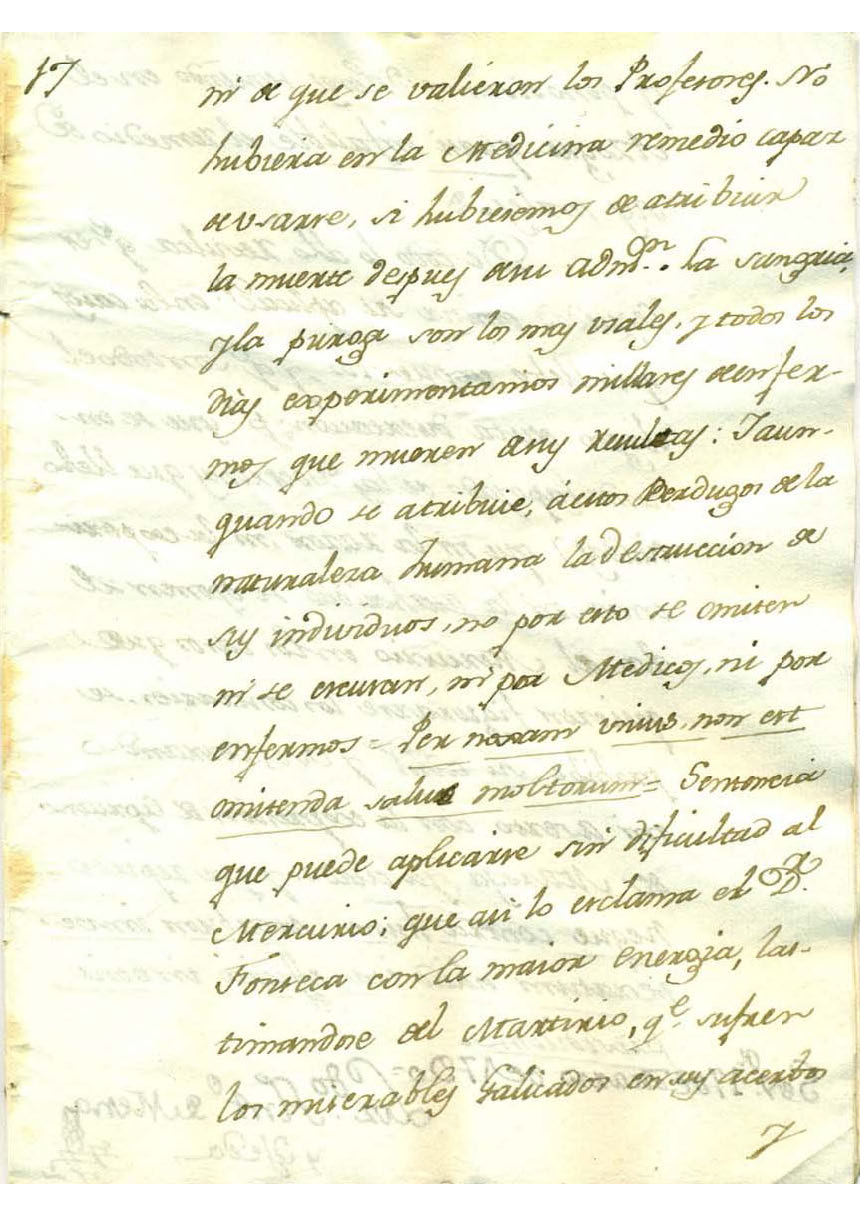 17
ni de que se valiéron los Profesores. No
hubiera en la Medicina remedio capaz
de usarse, si hubiesemos de atribuir
la muerte despues de su adm.on. La sangria,
y la purga son los mas viales, y todos los
dias experimentamos millares de enfer-
mos que mueren de sus resultas: Y aun-
quando se atribuie, á estos Verdugos de la
naturaleza humana la destruccion de
sus individuos, no por esto se omiten
ni se escusan, ni por Medicos, ni por
enfermos = Per noxam unius, non est
omitenda salus moltorum = Sentencia
que puede aplicarse sin dificultad al
Mercurio; que asi lo esclama el D.r
Fonseca con la maior energia, las-
timandose del Martirio, q.e sufren
los miserables Galicados en sus acerbos
y